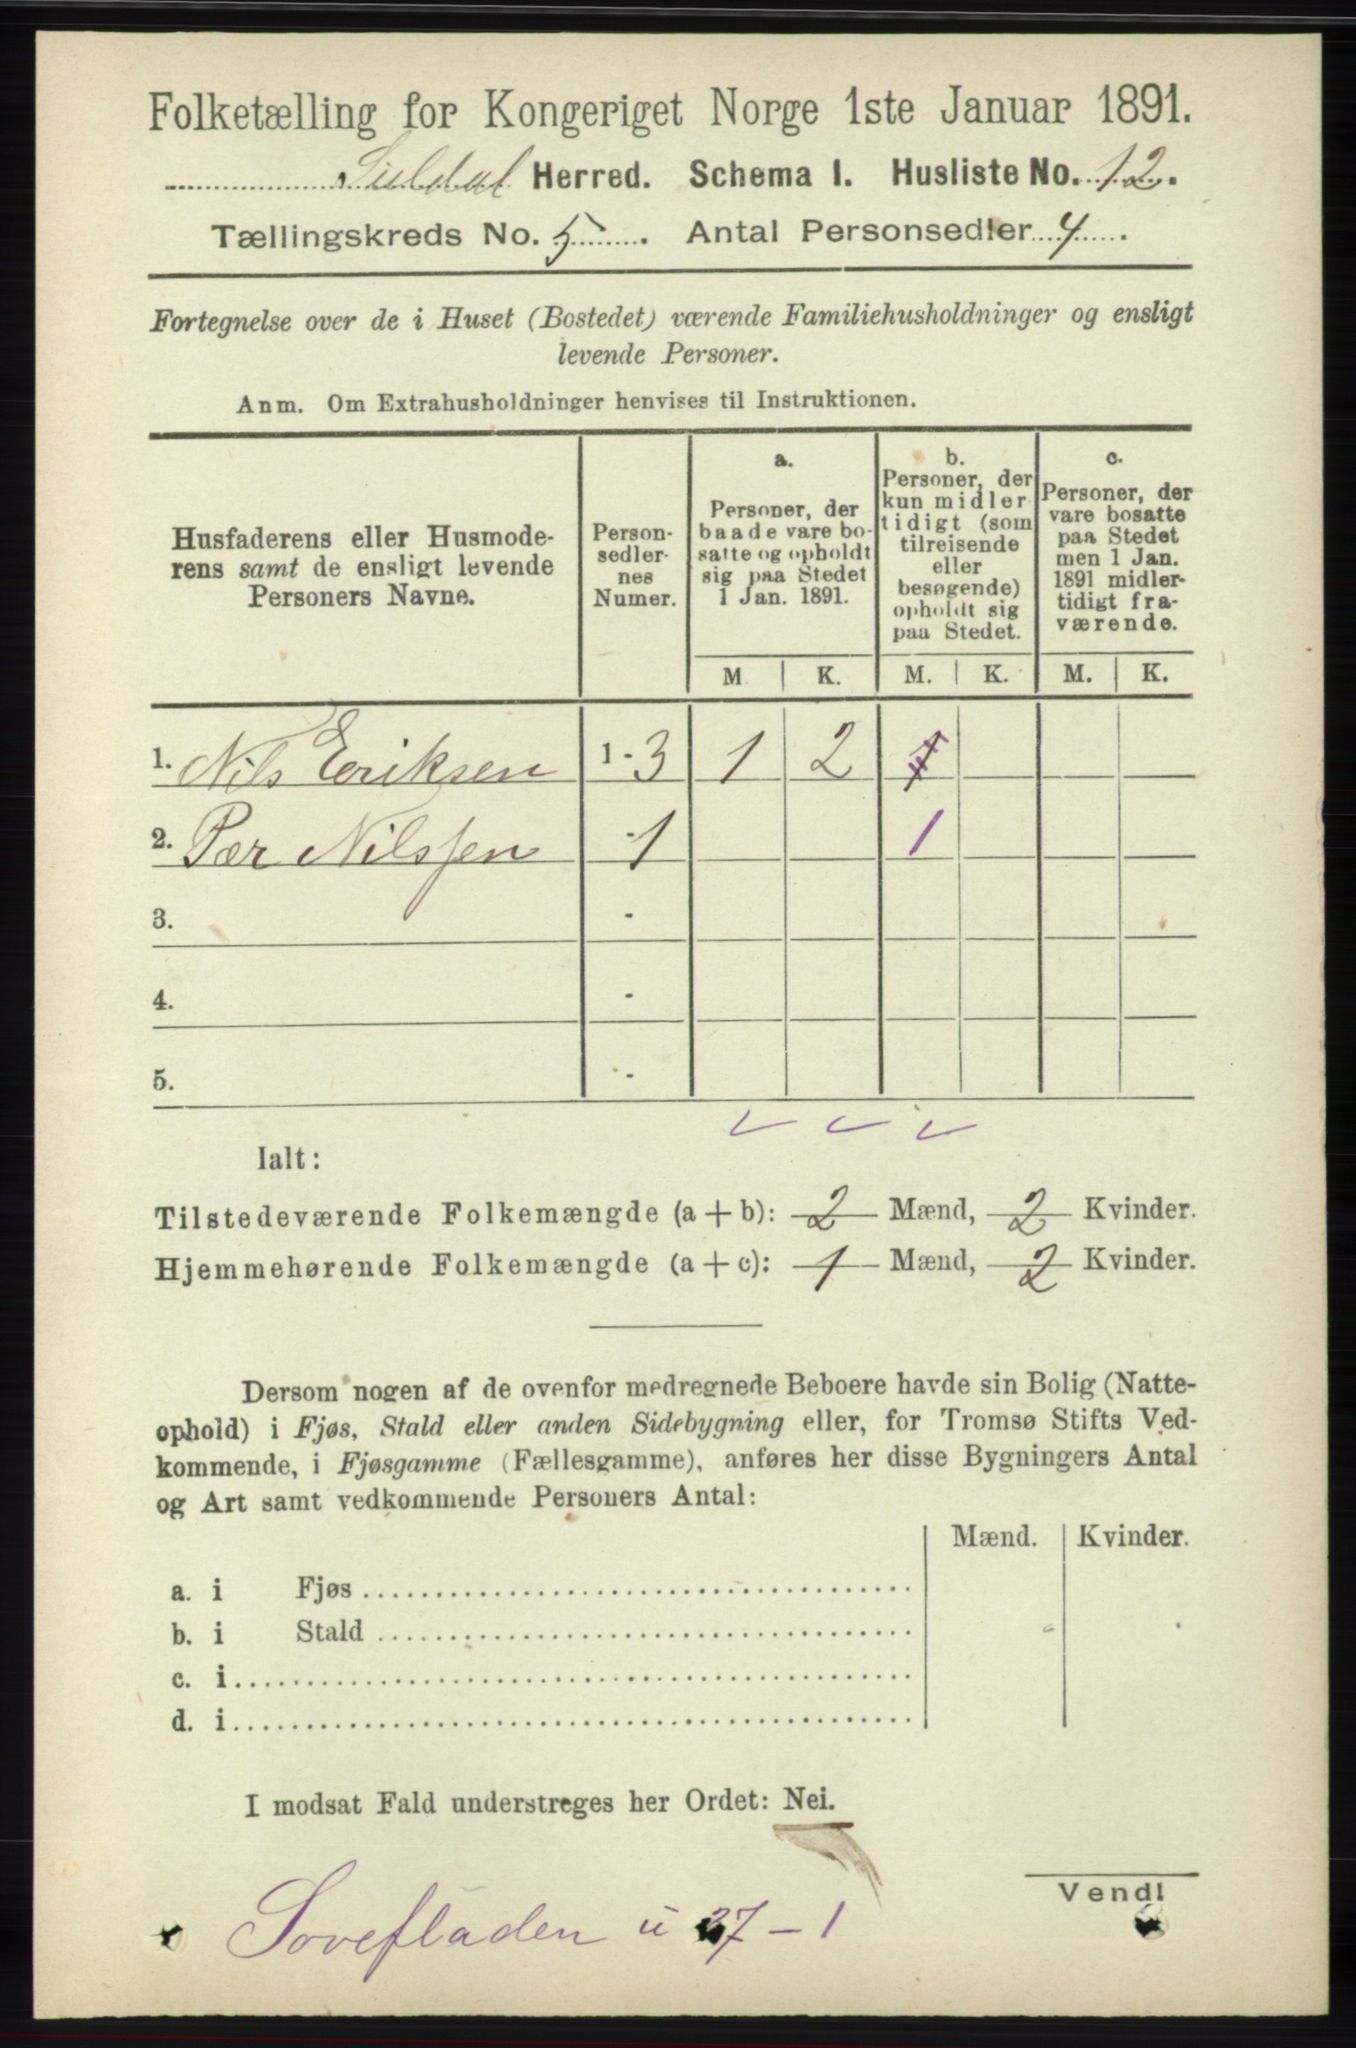 Folketælling for Kongeriget Norge 1ste Januar 1891.
Suldal Herred. Schema I. Husliste No. 12.
Tællingskreds No. 5. Antal Personsedler 4.
Fortegnelse over de i Huset (Bostedet) værende Familiehusholdninger og ensligt
levende Personer.
Anm. Om Extrahusholdninger henvises til Instruktionen.
Husfaderens eller Husmode-
rens samt de ensligt levende
Personers Navne.
Person-
sedler-
nes
Numer.
a.
Personer, der
baade vare bo-
satte og opholdt
sig paa Stedet
1 Jan. 1891.
b.
Personer, der
kun midler-
tidigt (som
tilreisende
eller
besøgende)
opholdt sig
paa Stedet.
c.
Personer, der
vare bosatte
paa Stedet
men 1 Jan.
1891 midler-
tidigt fra-
værende.
M. K. M. K. M. K.
1. Nils Eriksen 1-3 1 2 1
2. Pær Nilssen -1 1
3. -
4. -
5. -
Ialt:
Tilstedeværende Folkemængde (a + b): 2 Mænd, 2 Kvinder.
Hjemmehørende Folkemængde (a + c): 1 Mænd, 2 Kvinder.
Dersom nogen af de ovenfor medregnede Beboere havde sin Bolig (Natte-
ophold) i Fjøs, Stald eller anden Sidebygning eller, for Tromsø Stifts Ved-
kommende, i Fjøsgamme (Fællesgamme), anføres her disse Bygningers Antal
og Art samt vedkommende Personers Antal:
Mænd. Kvinder.
a. i Fjøs
b. i Stald
c. i
d. i
I modsat Fald understreges her Ordet: Nei.
Vend!
37-1